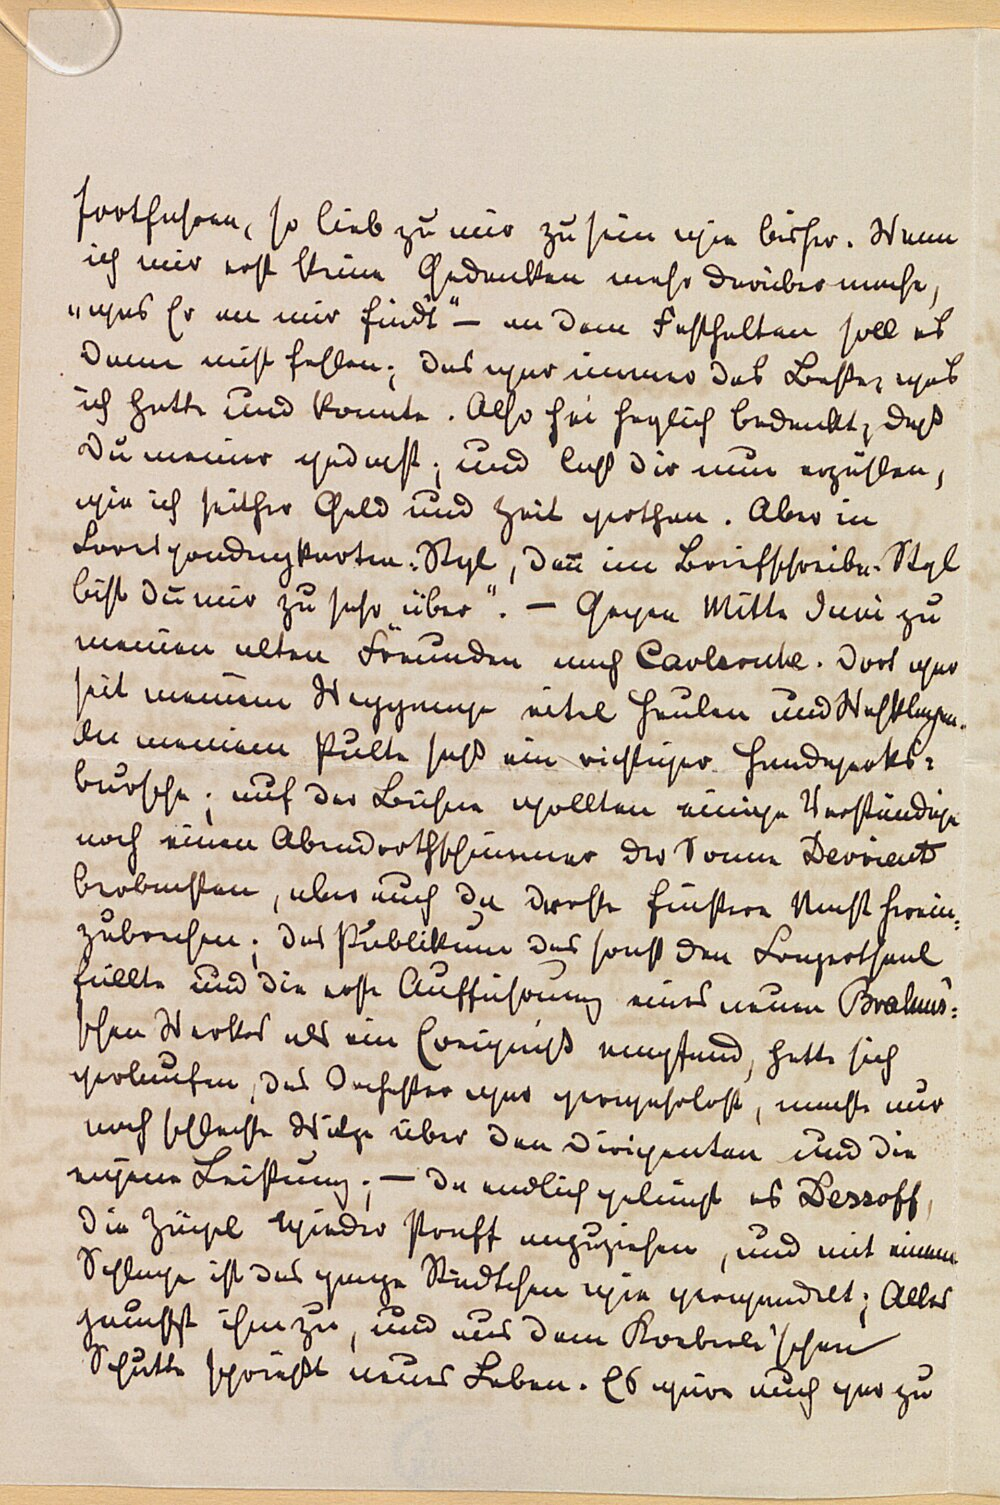 fortfahren, so lieb zu mir zu sein wie bisher. Wenn
ich mir erst keine Gedanken mehr darüber mache,
„was Er an mir findt“ – an dem Festhalten soll es
dann nicht fehlen; das war immer das Beste, was
ich hatte und konnte. Also sei herzlich bedankt, daß
Du meiner gedachst; und laß dir nun erzählen,
wie ich seither Geld und Zeit verthan. Aber in
Correspondenzkarten-Styl, den̅ im Briefschreibe-Styl
bist Du mir zu sehr über“. – Gegen Mitte Juni zu
meinen alten Freunden nach Carlsruhe. Dort war
seit meinem Weggange eitel Heulen und Wehklagen.
An meinem Pulte saß ein richtiger Handwerks-
bursche; auf der Bühne wollten einige Verständige
noch einen Abendrothschimmer der Sonne Devrient
beobachten, aber auch da drohte finstere Nacht herein-
zubrechen; das Publikum das sonst den Conzertsaal
füllte und die erste Aufführung eines neuen Brahms'-
schen Werkes als ein Ereigniß empfand, hatte sich
verlaufen, das Orchester war verwahrlost, machte nur
noch schlechte Witze über den Dirigenten und die
eigene Leistung; – da endlich gelingt es Dessoff,
die Zügel wieder straff anzuziehen, und mit einem
Schlage ist das ganze Städtchen wie verwandelt; Alles
jauchzt ihm zu, und aus dem Koeberle'schen
Schutte sprießt neues Leben. Es wäre auch gar zu